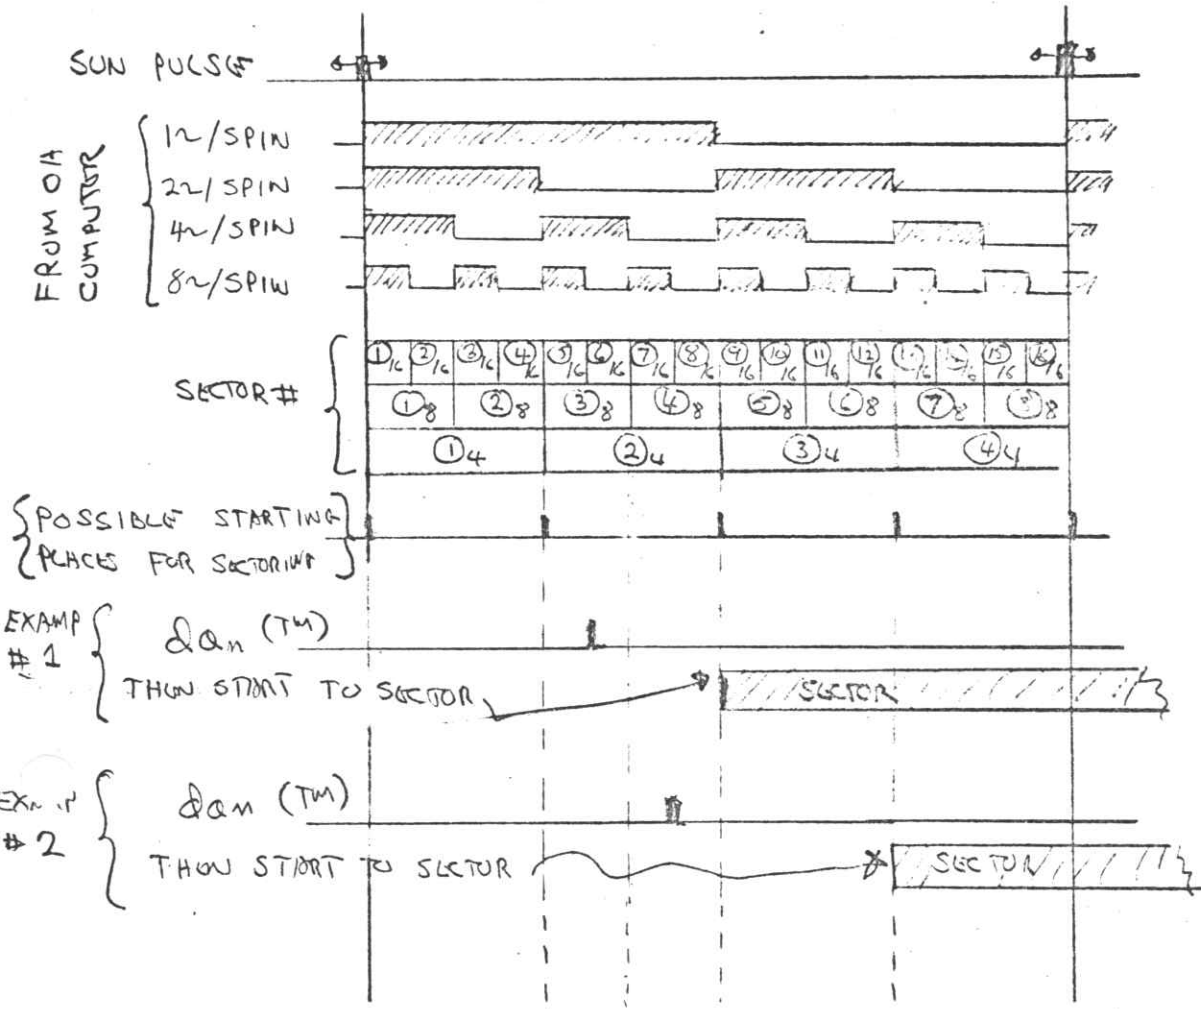 SUN PULSE
FROM OA
COMPUTOR
1~/SPIN
2~/SPIN
4~/SPIN
8~/SPIN
SECTOR #
①/16 ②/16 ③/16 ④/16 ⑤/16 ⑥/16 ⑦/16 ⑧/16 ⑨/16 ⑩/16 ⑪/16 ⑫/16 ⑬/16 ⑭/16 ⑮/16 ⑯/16
①8 ②8 ③8 ④8 ⑤8 ⑥8 ⑦8 ⑧8
①4 ②4 ③4 ④4
POSSIBLE STARTING
PLACES FOR SECTORING
EXAMP
# 1
(TM)
THEN START TO SECTOR
SECTOR
# 2
(TM)
THEN START TO SECTOR
SECTOR